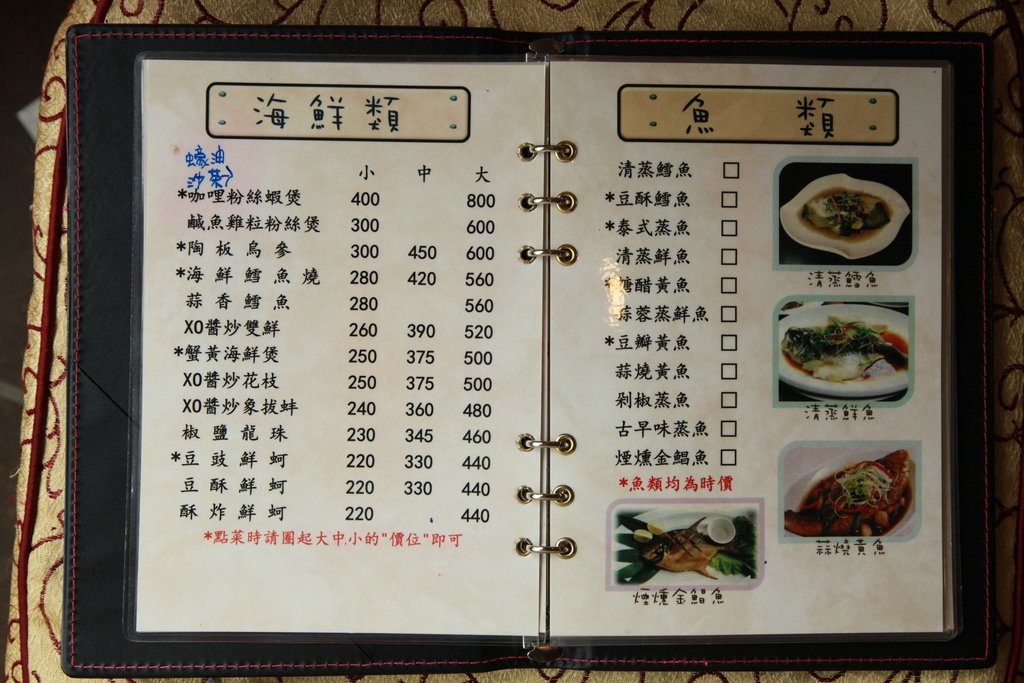 海鮮類
蠔油
沙茶
小 中 大
*咖哩粉絲蝦煲 400 800
鹹魚雞粒粉絲煲 300 600
*陶板烏參 300 450 600
*海鮮鱈魚燒 280 420 560
蒜香鱈魚 280 560
XO醬炒雙鮮 260 390 520
*蟹黃海鮮煲 250 375 500
XO醬炒花枝 250 375 500
XO醬炒象拔蚌 240 360 480
椒鹽龍珠 230 345 460
*豆豉鮮蚵 220 330 440
豆酥鮮蚵 220 330 440
酥炸鮮蚵 220 440
*點菜時請圈起大中小的"價位"即可
魚類
清蒸鱈魚 □
*豆酥鱈魚 □
*泰式蒸魚 □
清蒸鮮魚 □
*糖醋黃魚 □
蒜蓉蒸鮮魚 □
*豆瓣黃魚 □
蒜燒黃魚 □
剁椒蒸魚 □
古早味蒸魚 □
煙燻金鯧魚 □
*魚類均為時價
清蒸鱈魚
清蒸鮮魚
蒜燒黃魚
煙燻金鯧魚